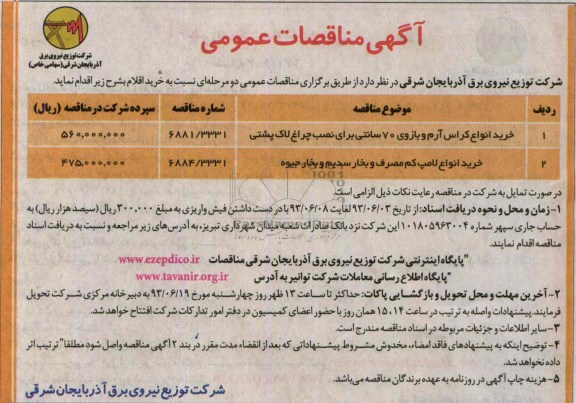 آگهی مناقصات عمومی
شرکت توزیع نیروی برق
آذربایجان شرقی (سهامی خاص)
شرکت توزیع نیروی برق آذربایجان شرقی در نظر دارد از طریق برگزاری مناقصات عمومی دو مرحله‌ای نسبت به خرید اقلام بشرح زیر اقدام نماید.
ردیف موضوع مناقصه شماره مناقصه سپرده شرکت در مناقصه (ریال)
۱ خرید انواع کراس آرم و بازوی ۷۰ سانتی برای نصب چراغ لاک پشتی ۶۸۸۱/۳۳۳۱ ۵۶۰,۰۰۰,۰۰۰
۲ خرید انواع لامپ کم مصرف و بخار سدیم و بخار جیوه ۶۸۸۴/۳۳۳۱ ۴۷۵,۰۰۰,۰۰۰
در صورت تمایل به شرکت در مناقصه رعایت نکات ذیل الزامی است.
۱- زمان و محل و نحوه دریافت اسناد: از تاریخ ۹۳/۰۶/۰۳ لغایت ۹۳/۰۶/۰۸ با در دست داشتن فیش واریزی به مبلغ ۳۰۰,۰۰۰ ریال (سیصد هزار ریال) به
حساب جاری سپهر شماره ۱۰۱۸۰۵۹۶۳۰۰۴ این شرکت نزد بانک صادرات شعبه میدان شهرداری تبریز، به آدرس‌های زیر مراجعه و نسبت به دریافت اسناد
مناقصه اقدام نمایند.
"پایگاه اینترنتی شرکت توزیع نیروی برق آذربایجان شرقی مناقصات www.ezepdico.ir"
"پایگاه اطلاع رسانی معاملات شرکت توانیر به آدرس www.tavanir.org.ir"
۲- آخرین مهلت و محل تحویل و بازگشایی پاکات: حداکثر تا ساعت ۱۳ ظهر روز چهارشنبه مورخ ۹۳/۰۶/۱۹ به دبیرخانه مرکزی شرکت تحویل
فرمایند. پیشنهادات واصله به ترتیب در ساعت ۱۴ و ۱۵ همان روز با حضور اعضای کمیسیون در دفتر امور تدارکات شرکت افتتاح خواهد شد.
۳- سایر اطلاعات و جزئیات مربوطه در اسناد مناقصه مندرج است.
۴- توضیح اینکه به پیشنهادهای فاقد امضاء، مخدوش مشروط پیشنهاداتی که بعد از انقضاء مدت مقرر در بند ۲ آگهی مناقصه واصل شود مطلقا" ترتیب اثر
داده نخواهد شد.
۵- هزینه چاپ آگهی در روزنامه به عهده برندگان مناقصه می‌باشد.
شرکت توزیع نیروی برق آذربایجان شرقی